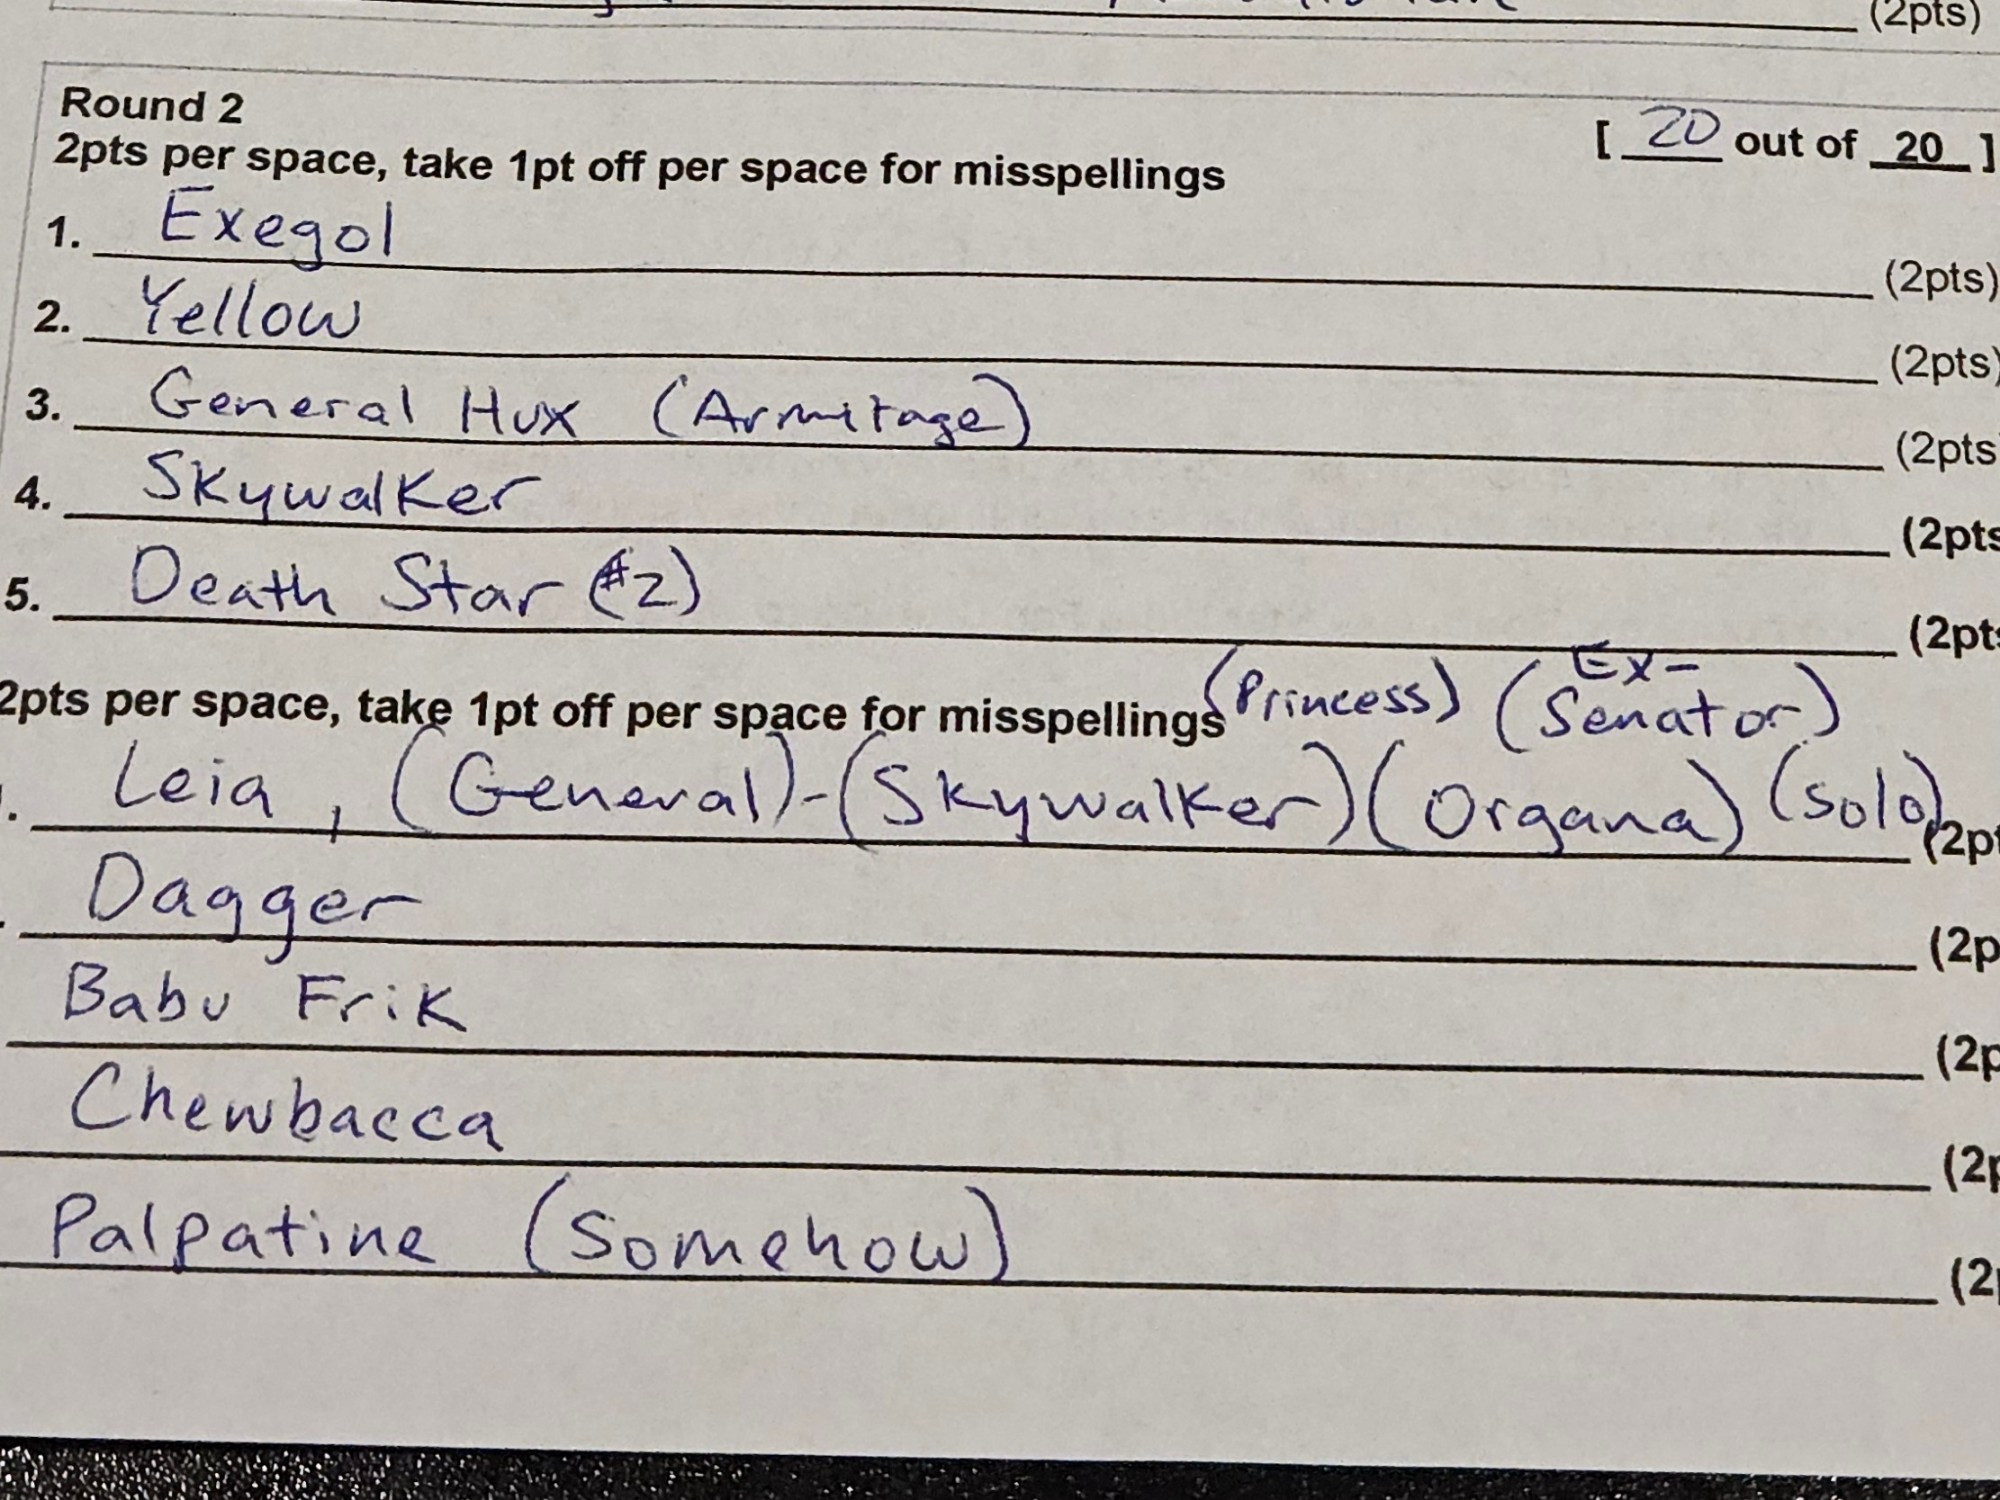 (2pts)
Round 2
[ 20 out of 20 ]
2pts per space, take 1pt off per space for misspellings
1. Exegol (2pts)
2. Yellow (2pts)
3. General Hux (Armitage) (2pts
4. Skywalker (2pts
5. Death Star (#2) (2pts
2pts per space, take 1pt off per space for misspellings (Princess) (Ex-Senator)
. Leia, (General)-(Skywalker)(Organa) (Solo) (2pt
. Dagger (2p
Babu Frik (2p
Chewbacca (2p
Palpatine (Somehow) (2p